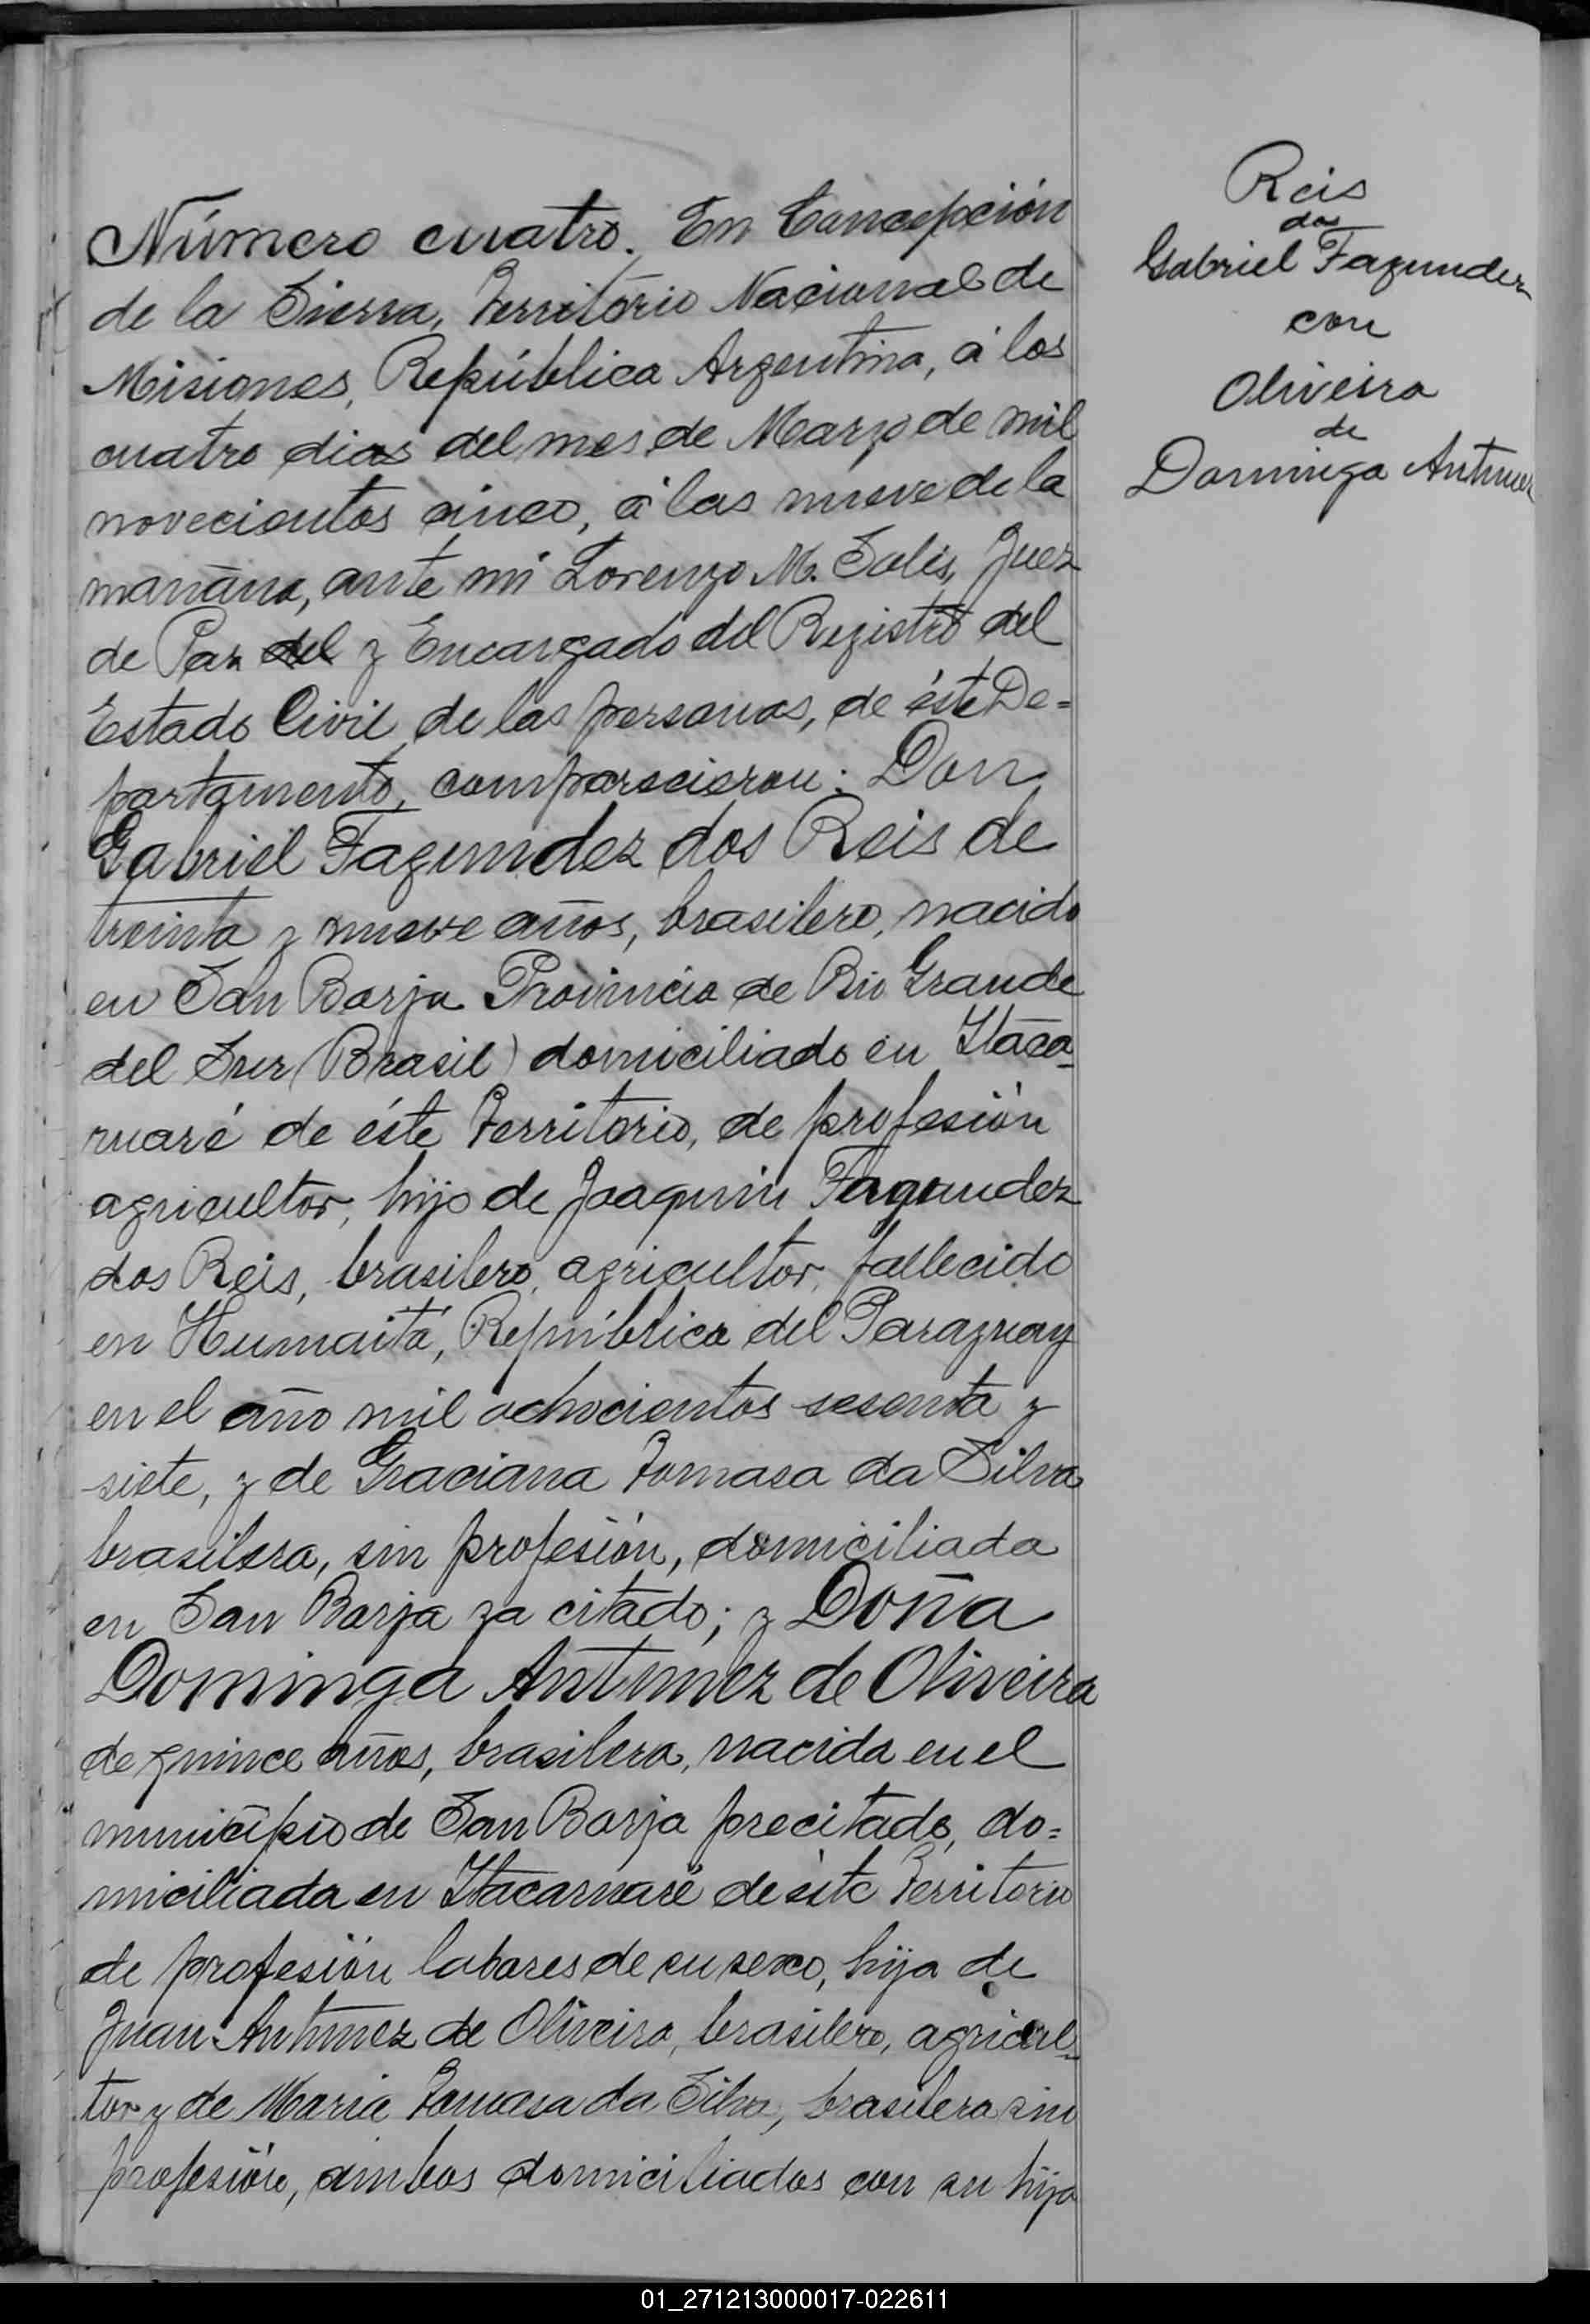 Número cuatro. En Concepción
de la Sierra, Territorio Nacional de
Misiones, República Argentina, á los
cuatro dias del mes de Marzo de mil
novecientos cinco, á las nueve de la
mañana, ante mi Lorenzo M. Solis, Juez
de Paz del y Encargado del Registro del
Estado Civil de las personas, de éste De=
partamento, comparecieron: Don
Gabriel Fagundez dos Reis de
treinta y nueve años, brasilero, nacido
en San Borja Provincia de Rio Grande
del Sur (Brasil) domiciliado en Itaca-
ruaré de éste Territorio, de profesión
agricultor, hijo de Joaquin Fagundez
dos Reis, brasilero, agricultor, fallecido
en Humaitá, República del Paraguay
en el año mil ochocientos sesenta y
siete, y de Graciana Tomasa da Silva
brasilera, sin profesión, domiciliada
en San Borja ya citado; y Doña
Dominga Antunez de Oliveira
de quince años, brasilera, nacida en el
municipio de San Borja precitado, do=
miciliada en Itacaruaré de éste Territorio
de profesión labores de su sexo, hija de
Juan Antunez de Oliveira, brasilero, agricul-
tor y de Maria Tomasa da Silva, brasilera sin
profesión, ambos domiciliados con su hija
Reis
dos
Gabriel Fagundez
con
Oliveira
de
Dominga Antunez
01_271213000017-022611